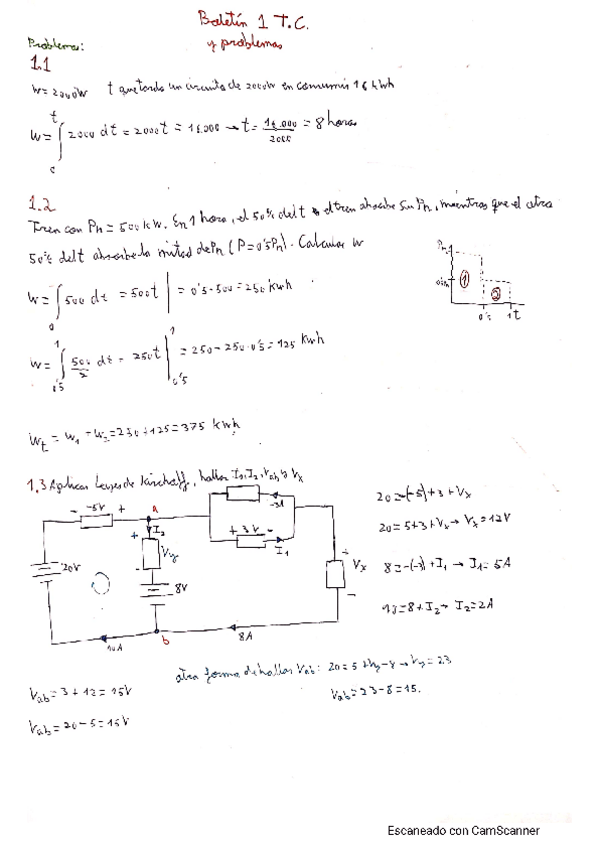 Boletín 1 T.C.
y problemas
Problemas:
1.1
W=2000W t que tarda un circuito de 2000W en consumir 16 kWh
W = ∫ 2000 dt = 2000t = 16.000 → t = 16.000/2000 = 8 horas
1.2
Tren con Pn = 500 kW. En 1 hora, el 50% del t el tren absorbe Pn, mientras que el otro
50% del t absorbe la mitad de Pn (P=0'5Pn). Calcular W
Pn
1
2
0'5 1 t
W = ∫ 500 dt = 500t | = 0'5·500 = 250 kWh
0
W = ∫ 500/2 dt = 250t | = 250-250·0'5 = 125 kWh
0'5 1 0'5 1
Wt = W1 + W2 = 250+125 = 375 kWh
1.3 Aplicar Leyes de Kirchoff, hallar I1, I2, Vab y Vx
- -5V + a -3A
+ 3V -
I1
I2
+ Vy -
20V
8V
+ Vx
b
10A 8A
20=-(-5)+3+Vx
20=5+3+Vx → Vx=12V
8=-(-3)+I1 → I1=5A
10=8+I2 → I2=2A
Vab=3+12=15V
Vab=20-5=15V
otra forma de hallar Vab: 20=5+Vy-8 → Vy=23
Vab=23-8=15.
Escaneado con CamScanner